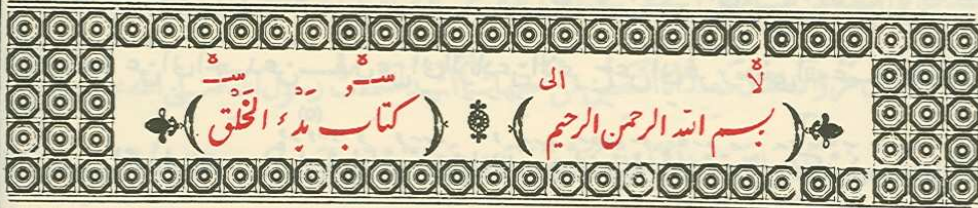 لا الى
(بسم الله الرحمن الرحيم) (كتابُ بَدْءِ الخَلْقِ)